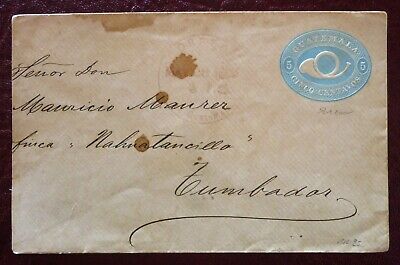 GUATEMALA
5 5
CINCO CENTAVOS
Señor Don
Mauricio Maurer
finca "Nahuatancillo"
Tumbador